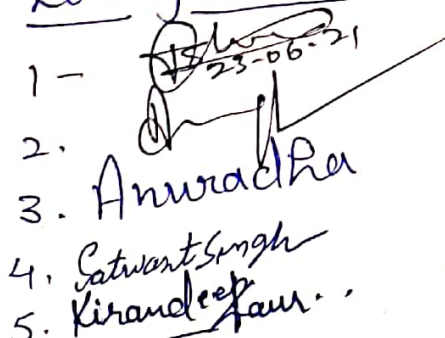 1-
23-06-21
2.
3. Anuradha
4. Satwant Singh
5. Kirandeep Kaur..